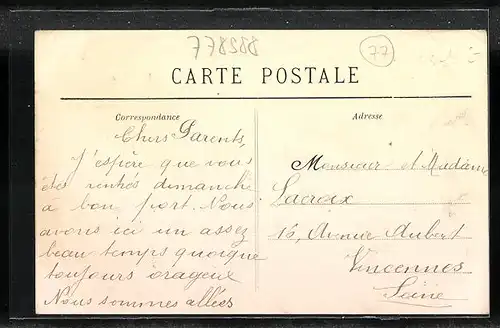 77
CARTE POSTALE
Correspondance
Adresse
Chers Parents,
J'espère que vous
êtes rentrés dimanche
à bon port. Nous
avons ici un assez
beau temps quoique
toujours orageux
Nous sommes allées
Monsieur et Madame
Lacroix
16, Avenue Aubert
Vincennes
Seine